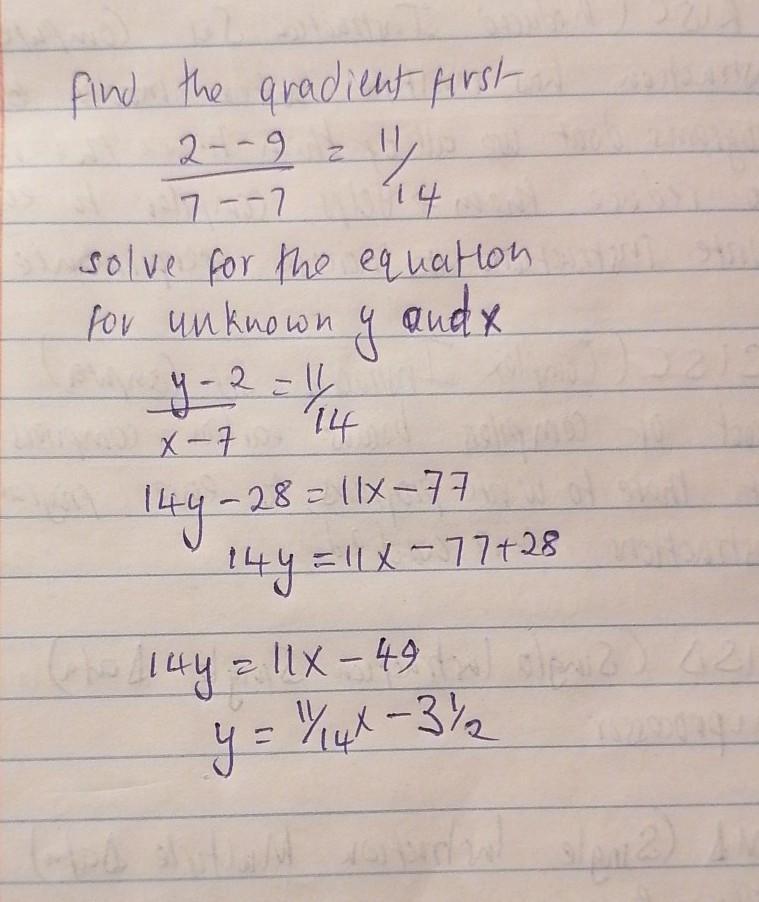 find the gradient first
2--9 = 11/14
7--7
solve for the equation
for unknown y and x
y-2 = 11/14
x-7
14y-28 = 11x-77
14y = 11x-77+28
14y = 11x-49
y = 11/14x-3 1/2